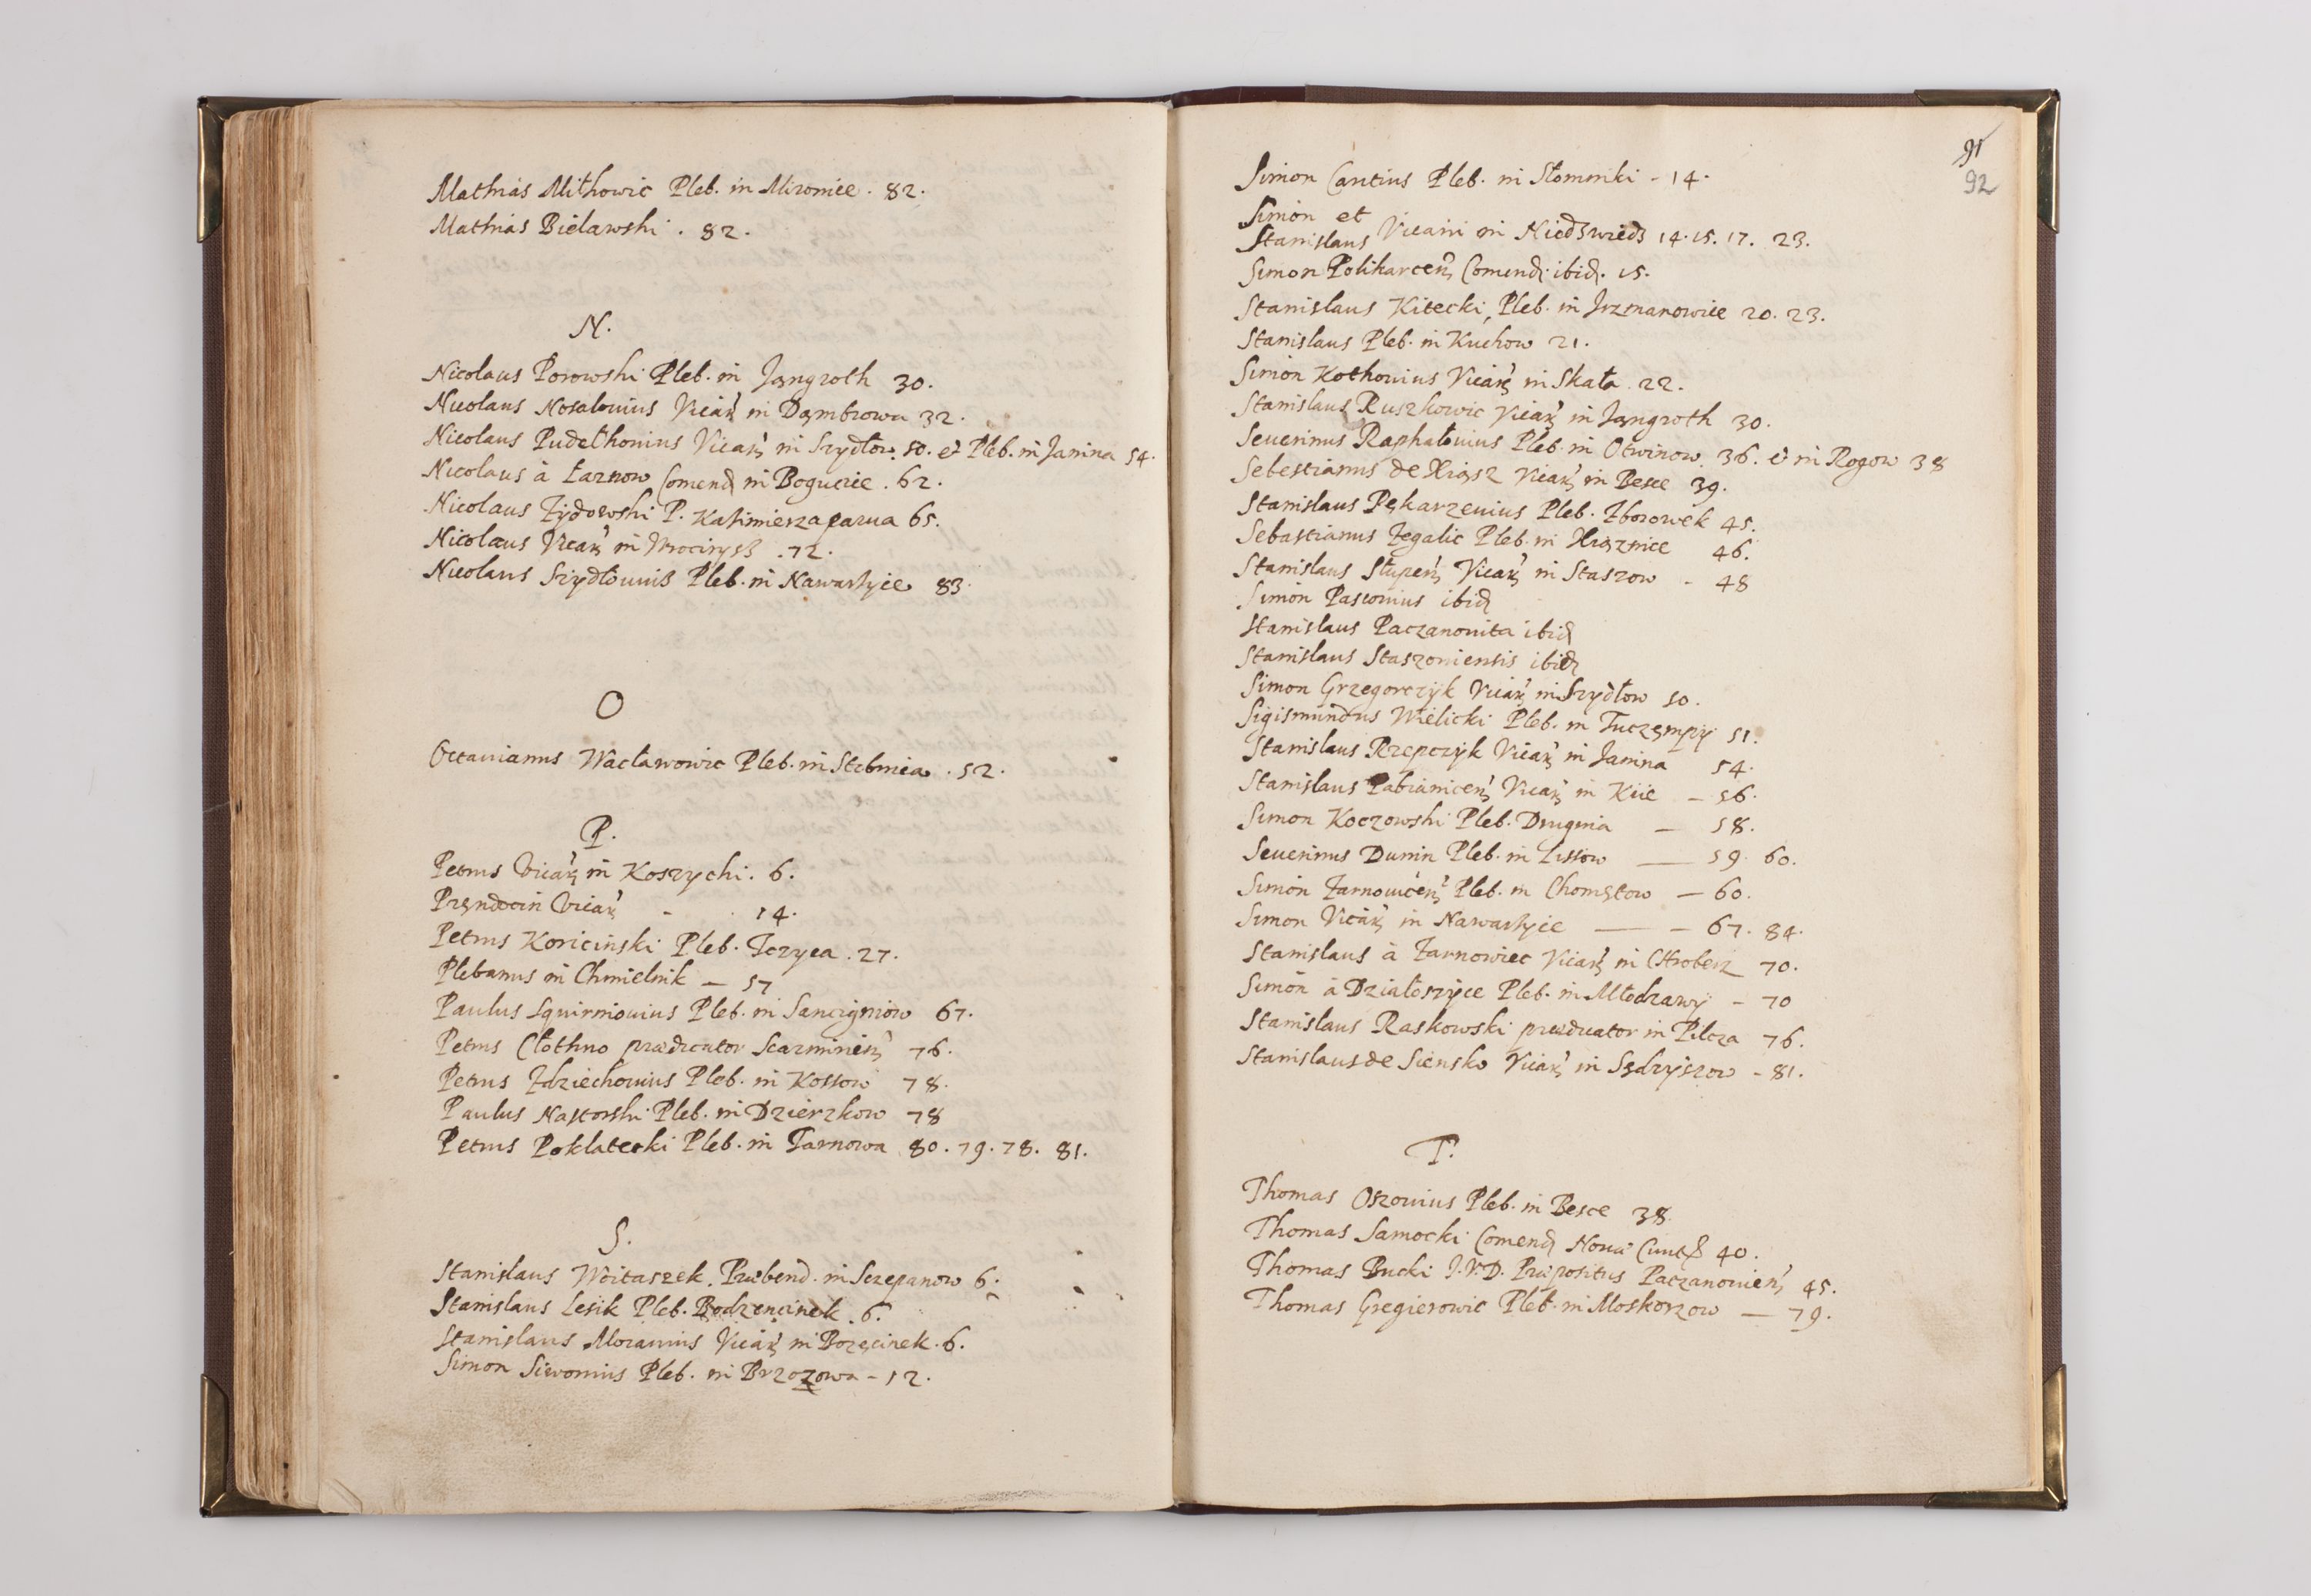 Mathias Mithowic Pleb. in Mironice . 82.
Mathias Bielawski . 82.
N.
Nicolaus Porowski Pleb. in Jangroth 30.
Nicolaus Nosalouius Vicarꝰ in Dąmbrowa 32.
Nicolaus Pudelhouius Vicarꝰ in Szydłow. 50. et Pleb. in Janina 54.
Nicolaus à Tarnow Comend in Bogucice . 62.
Nicolaus Zydowski P. Kasimierza parua 65.
Nicolaus Vicarꝰ in 72.
Nicolaus Szydłouius Pleb. in Nawarzyce 83.
O
Octauianus Wacławowic Pleb. in Stobnica . 52.
P.
Petrus Vicarꝰ in Koszychi. 6.
Prendocin Vicarꝰ - . 14.
Petrus Koricinski Pleb. Tczyca . 27.
Plebanus in Chmielnik — 57
Paulus Squirniouius Pleb. in Sancigniow 67.
Petrus Clothno prædicator Scarminień 76.
Petrus Zdziechouius Pleb. in Kossow 78.
Paulus Nastorski Pleb. in Dzierzkow 78
Petrus Poklatecki Pleb. in Tarnowa 80. 79. 78. 81.
S.
Stanislaus Woitaszek. Præbend. in Sczepanow 6.
Stanislaus Lesik Pleb. Bodzencinek . 6.
Stanislaus Morauius Vicarꝰ in Borzęcinek. 6.
Simon Pleb. in Brzozowa - 12.
91
92
Simon Cantius Pleb. in Słomniki - 14.
Simon et
Stanislaus Vicarii in Niedzwiedz 14. 15. 17. 23.
Simon Polikarceń Comend. ibid. 15.
Stanislaus Kitecki, Pleb. in Jrzmanowice 20. 23.
Stanislaus Pleb. in Kuchow 21.
Simon Kothouius Vicarꝰ in Skała . 22.
Stanislaus Ruszkowic Vicarꝰ in Jangroth 30.
Seuerinus Raphałouius Pleb. in Otwinow. 36. et in Rogow 38
Sebestianus de Xiąsz Vicarꝰ in Besce 39.
Stanislaus Pękarzeuius Pleb. Zborowek 45.
Sebastianus Zegalic Pleb. in Xiąznice 46.
Stanislaus Słupeń Vicarꝰ in Staszow - 48
Simon Pasconius ibid
Stanislaus Paczanouita ibid
Stanislaus Staszouiensis ibid
Simon Grzegorczyk Vicarꝰ in Szydłow 50.
Sigismundus Wielicki Pleb. in Tuczempy 51.
Stanislaus Rzepczyk Vicarꝰ in Janina 54.
Stanislaus Pabianiceń Vicarꝰ in Kiie - 56.
Simon Koczowski Pleb. Drugnia — 58.
Seuerinus Dunin Pleb. in Lissow — 59. 60.
Simon Tarnouiceń Pleb. in Chomętow — 60.
Simon Vicarꝰ in Nawarzyce — - 67. 84.
Stanislaus à Tarnowiec Vicarꝰ in Chroberz 70.
Simon à Działoszyce Pleb. in Młodzawy - 70
Stanislaus Raskowski prædicator in Pilcza 76.
Stanislaus de Siensko Vicarꝰ in Sędzyszow - 81.
T.
Thomas Oszouius Pleb. in Besce 38.
Thomas Samocki Comend Noua 40.
Thomas Bucki J.V.D. Præpositus Paczanouień 45.
Thomas Gregierowic Pleb. in Moskorzow — 79.